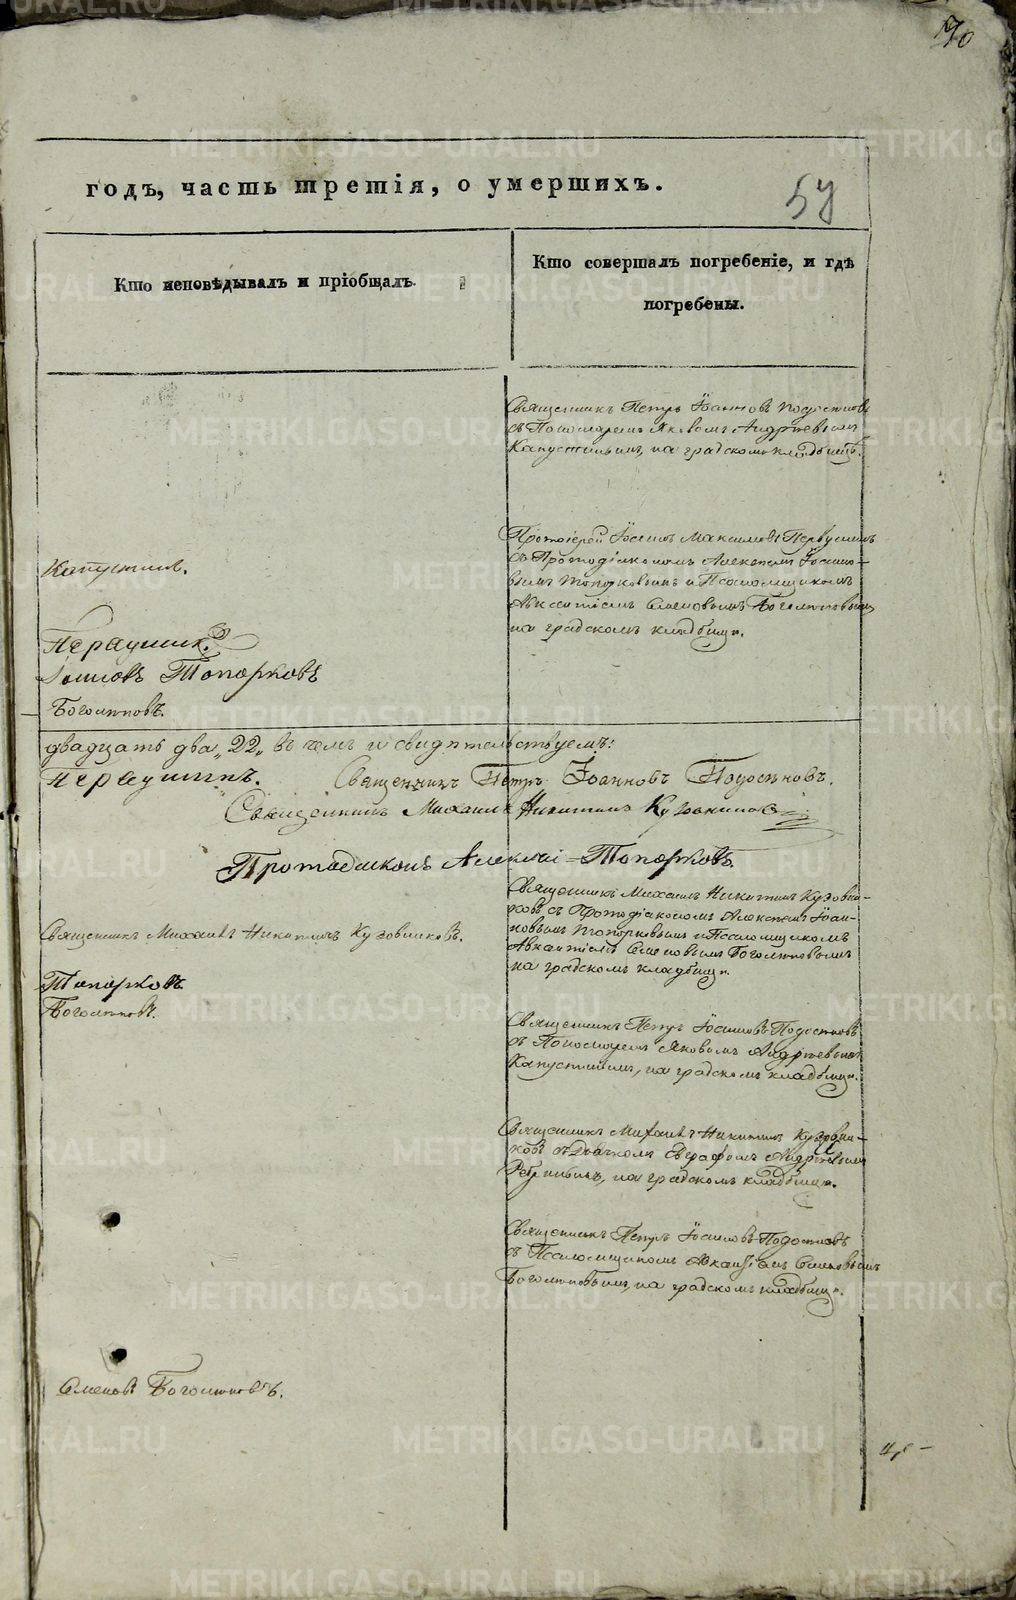 170
годъ, часть третія, о умершихъ.
57
Кто исповѣдывалъ и пріобщалъ.
Кто совершалъ погребеніе, и гдѣ
погребены.
Священникъ Петръ Іоанновъ Подосеновъ
съ Пономаремъ Яковомъ Андреевымъ
Капустинымъ, на градскомъ кладбищѣ.
Протоіерей Іоаннъ Максимовъ Первушинъ
съ Протодіакономъ Алексѣемъ Іоанно-
вымъ Топорковымъ и Псаломщикомъ
Авксентіемъ Семеновымъ Боголѣповымъ
на градскомъ кладбищѣ.
Капустинъ.
Первушинъ.
Іоанновъ Топорковъ
Боголѣповъ.
двадцать два „22„ въ чемъ и свидѣтельствуемъ:
Первушинъ. Священникъ Петръ Іоанновъ Подосеновъ.
Священникъ Михаилъ Никитинъ Кузовниковъ
Протодіаконъ Алексѣй Топорковъ.
Священникъ Михаилъ Никитинъ Кузовни-
ковъ съ Протодіакономъ Алексѣемъ Іоан-
новымъ Топорковымъ и Псаломщикомъ
Авксентіемъ Семеновымъ Боголѣповымъ
на градскомъ кладбищѣ.
Священникъ Михаилъ Никитинъ Кузовниковъ.
Топорковъ
Боголѣповъ.
Священникъ Петръ Іоанновъ Подосеновъ
съ Пономаремъ Яковомъ Андреевымъ
Капустинымъ, на градскомъ кладбищѣ.
Священникъ Михаилъ Никитинъ Кузовни-
ковъ съ Дьячкомъ Андреевымъ
на градскомъ кладбищѣ.
Священникъ Петръ Іоанновъ Подосеновъ
съ Псаломщикомъ Авксентіемъ Семеновымъ
Боголѣповымъ, на градскомъ кладбищѣ.
Семеновъ Боголѣповъ.
METRIKI.GASO-URAL.RU